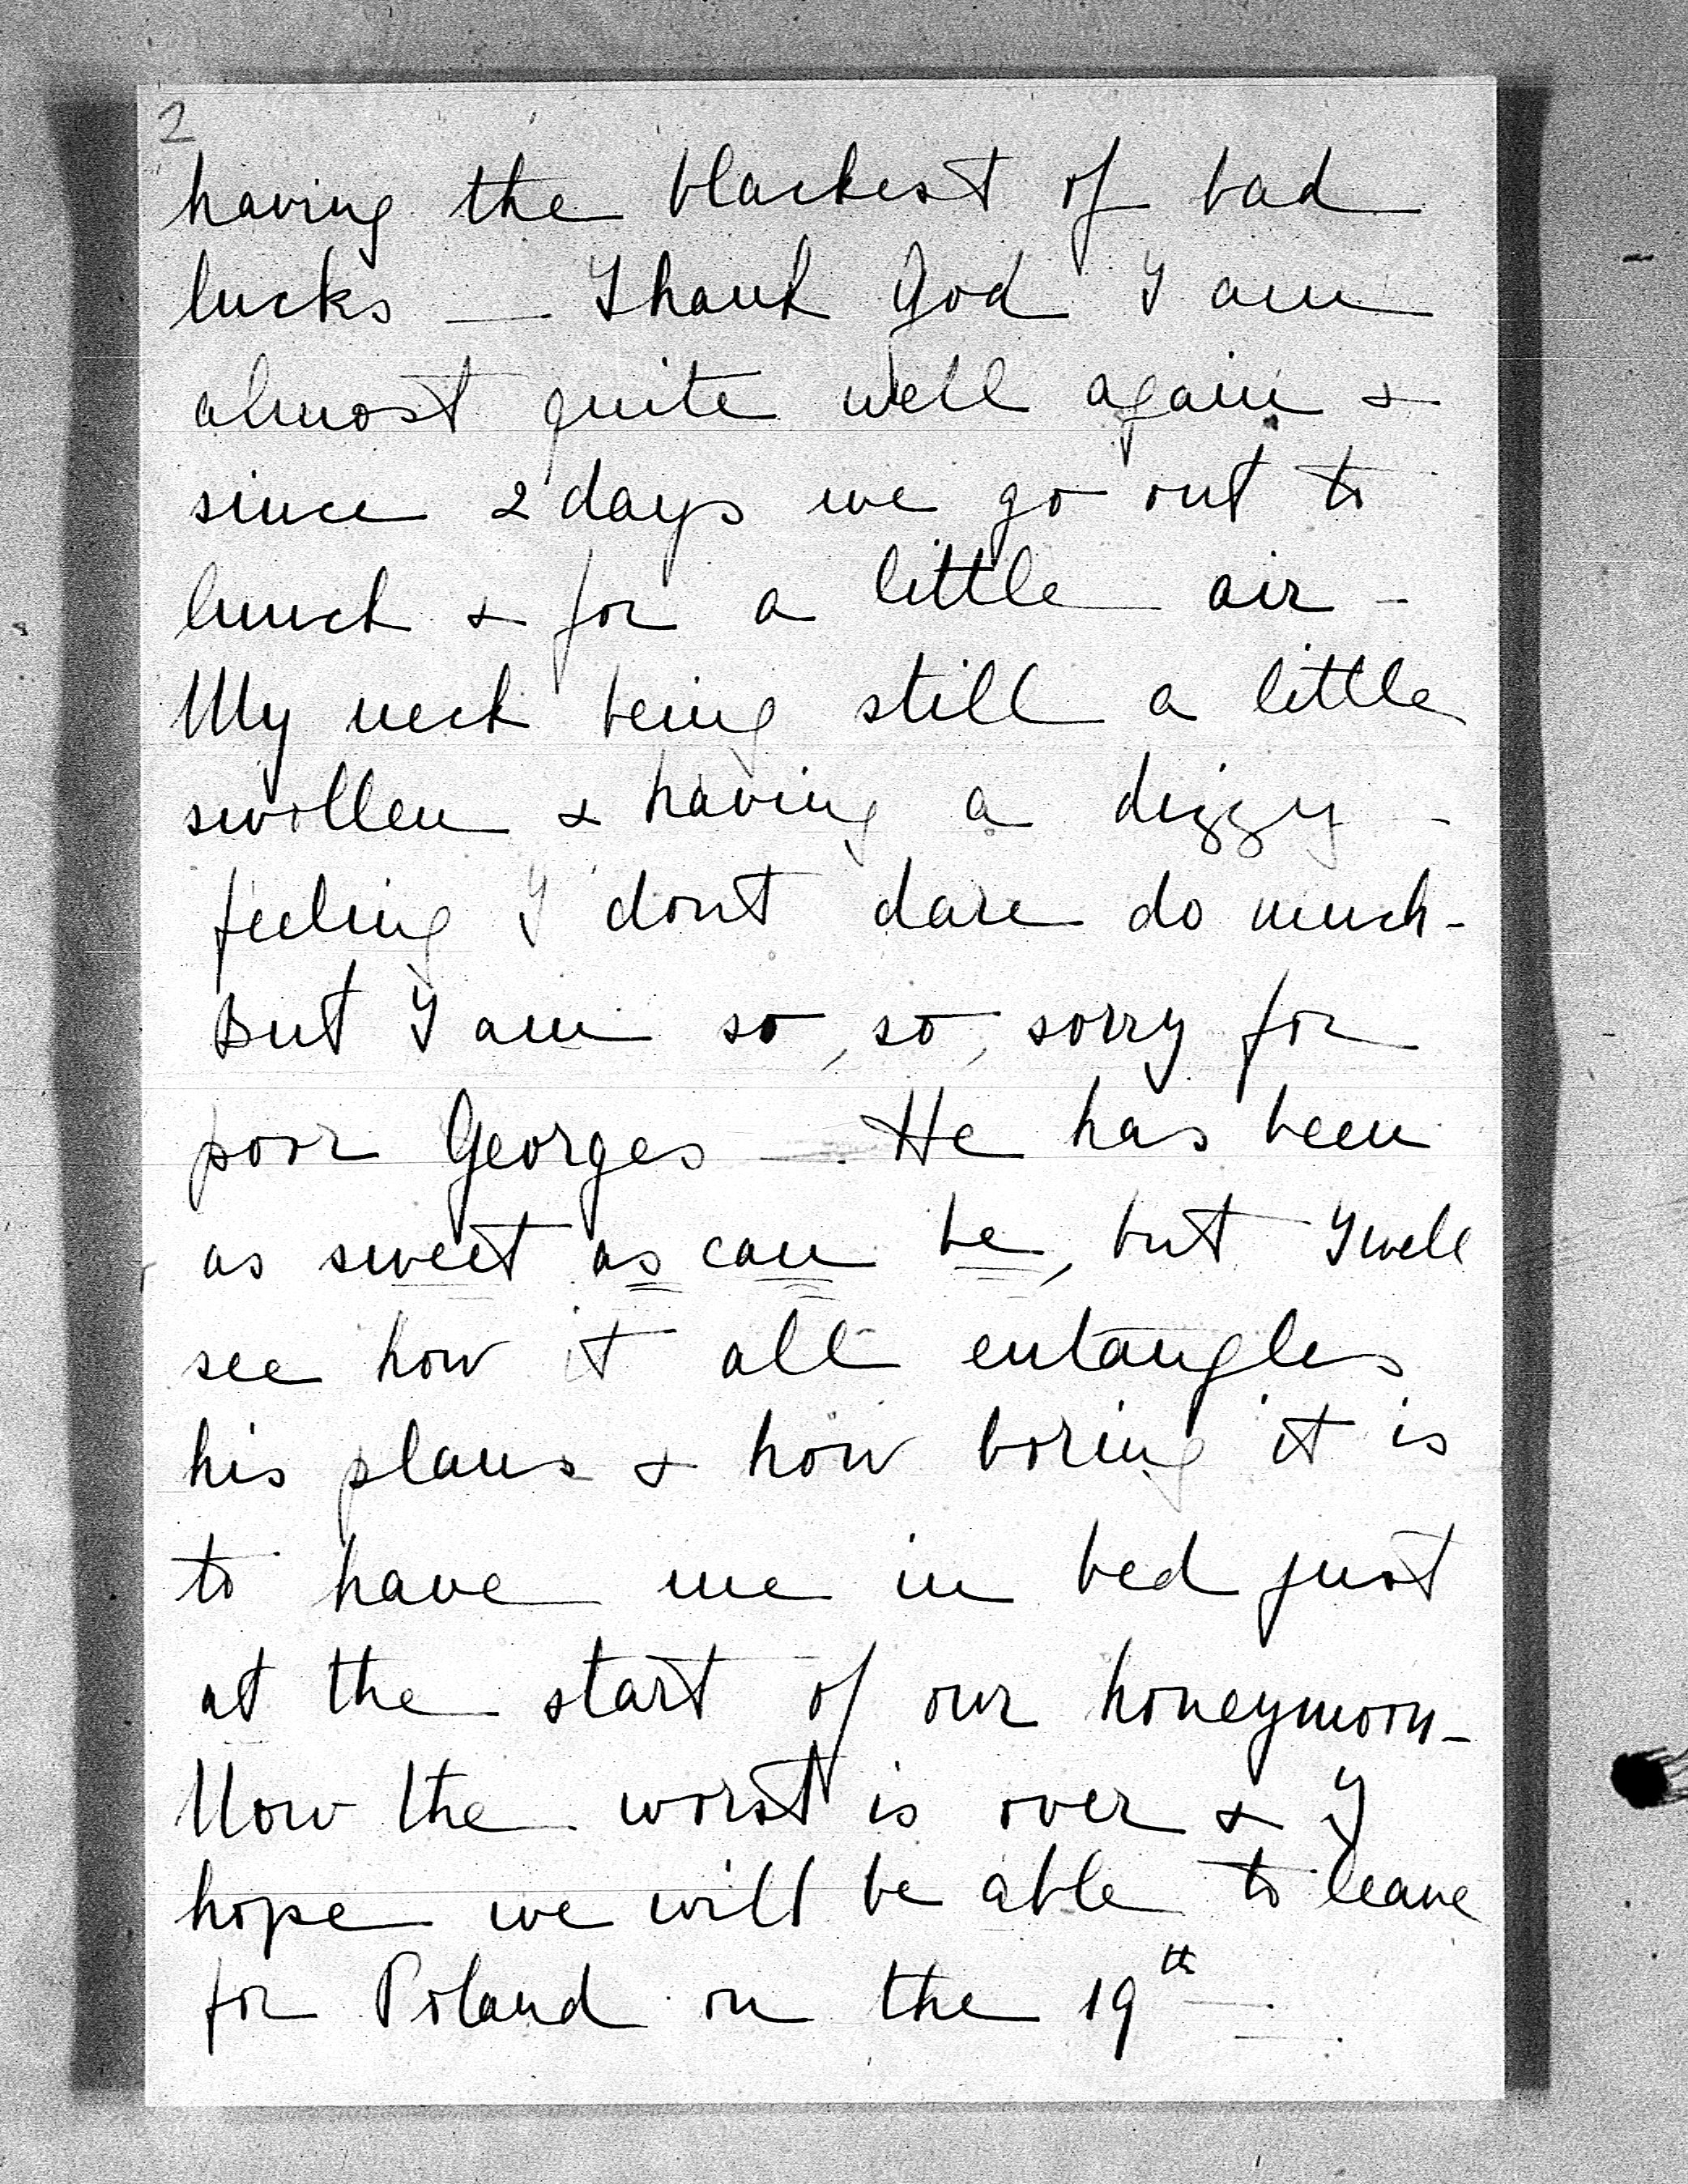 2
having the blackest of bad
lucks — Thank God I am
almost quite well again &
since 2 days we go out to
lunch & for a little air -
My neck being still a little
swollen & having a dizzy -
feeling I dont dare do much -
But I am so, so, sorry for
poor Georges — He has been
as sweet as can be, but I well
see how it all entangles
his plans & how boring it is
to have me in bed just
at the start of our honeymoon -
Now the worst is over & I
hope we will be able to leave
for Poland on the 19th —